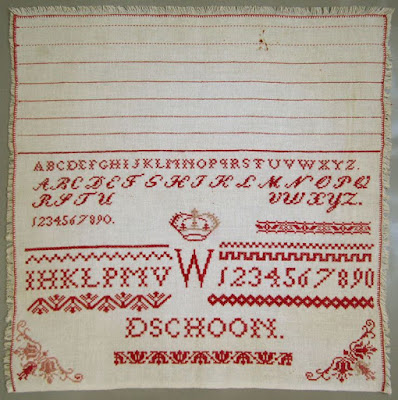 ABCDEFGHIJKLMNOPQRSTUVWXYZ.
ABCDEFGHIJKLMNOPQ
RSTU VWXYZ.
1234567890.
IHKLPMV W 1234567890
DSCHOON.